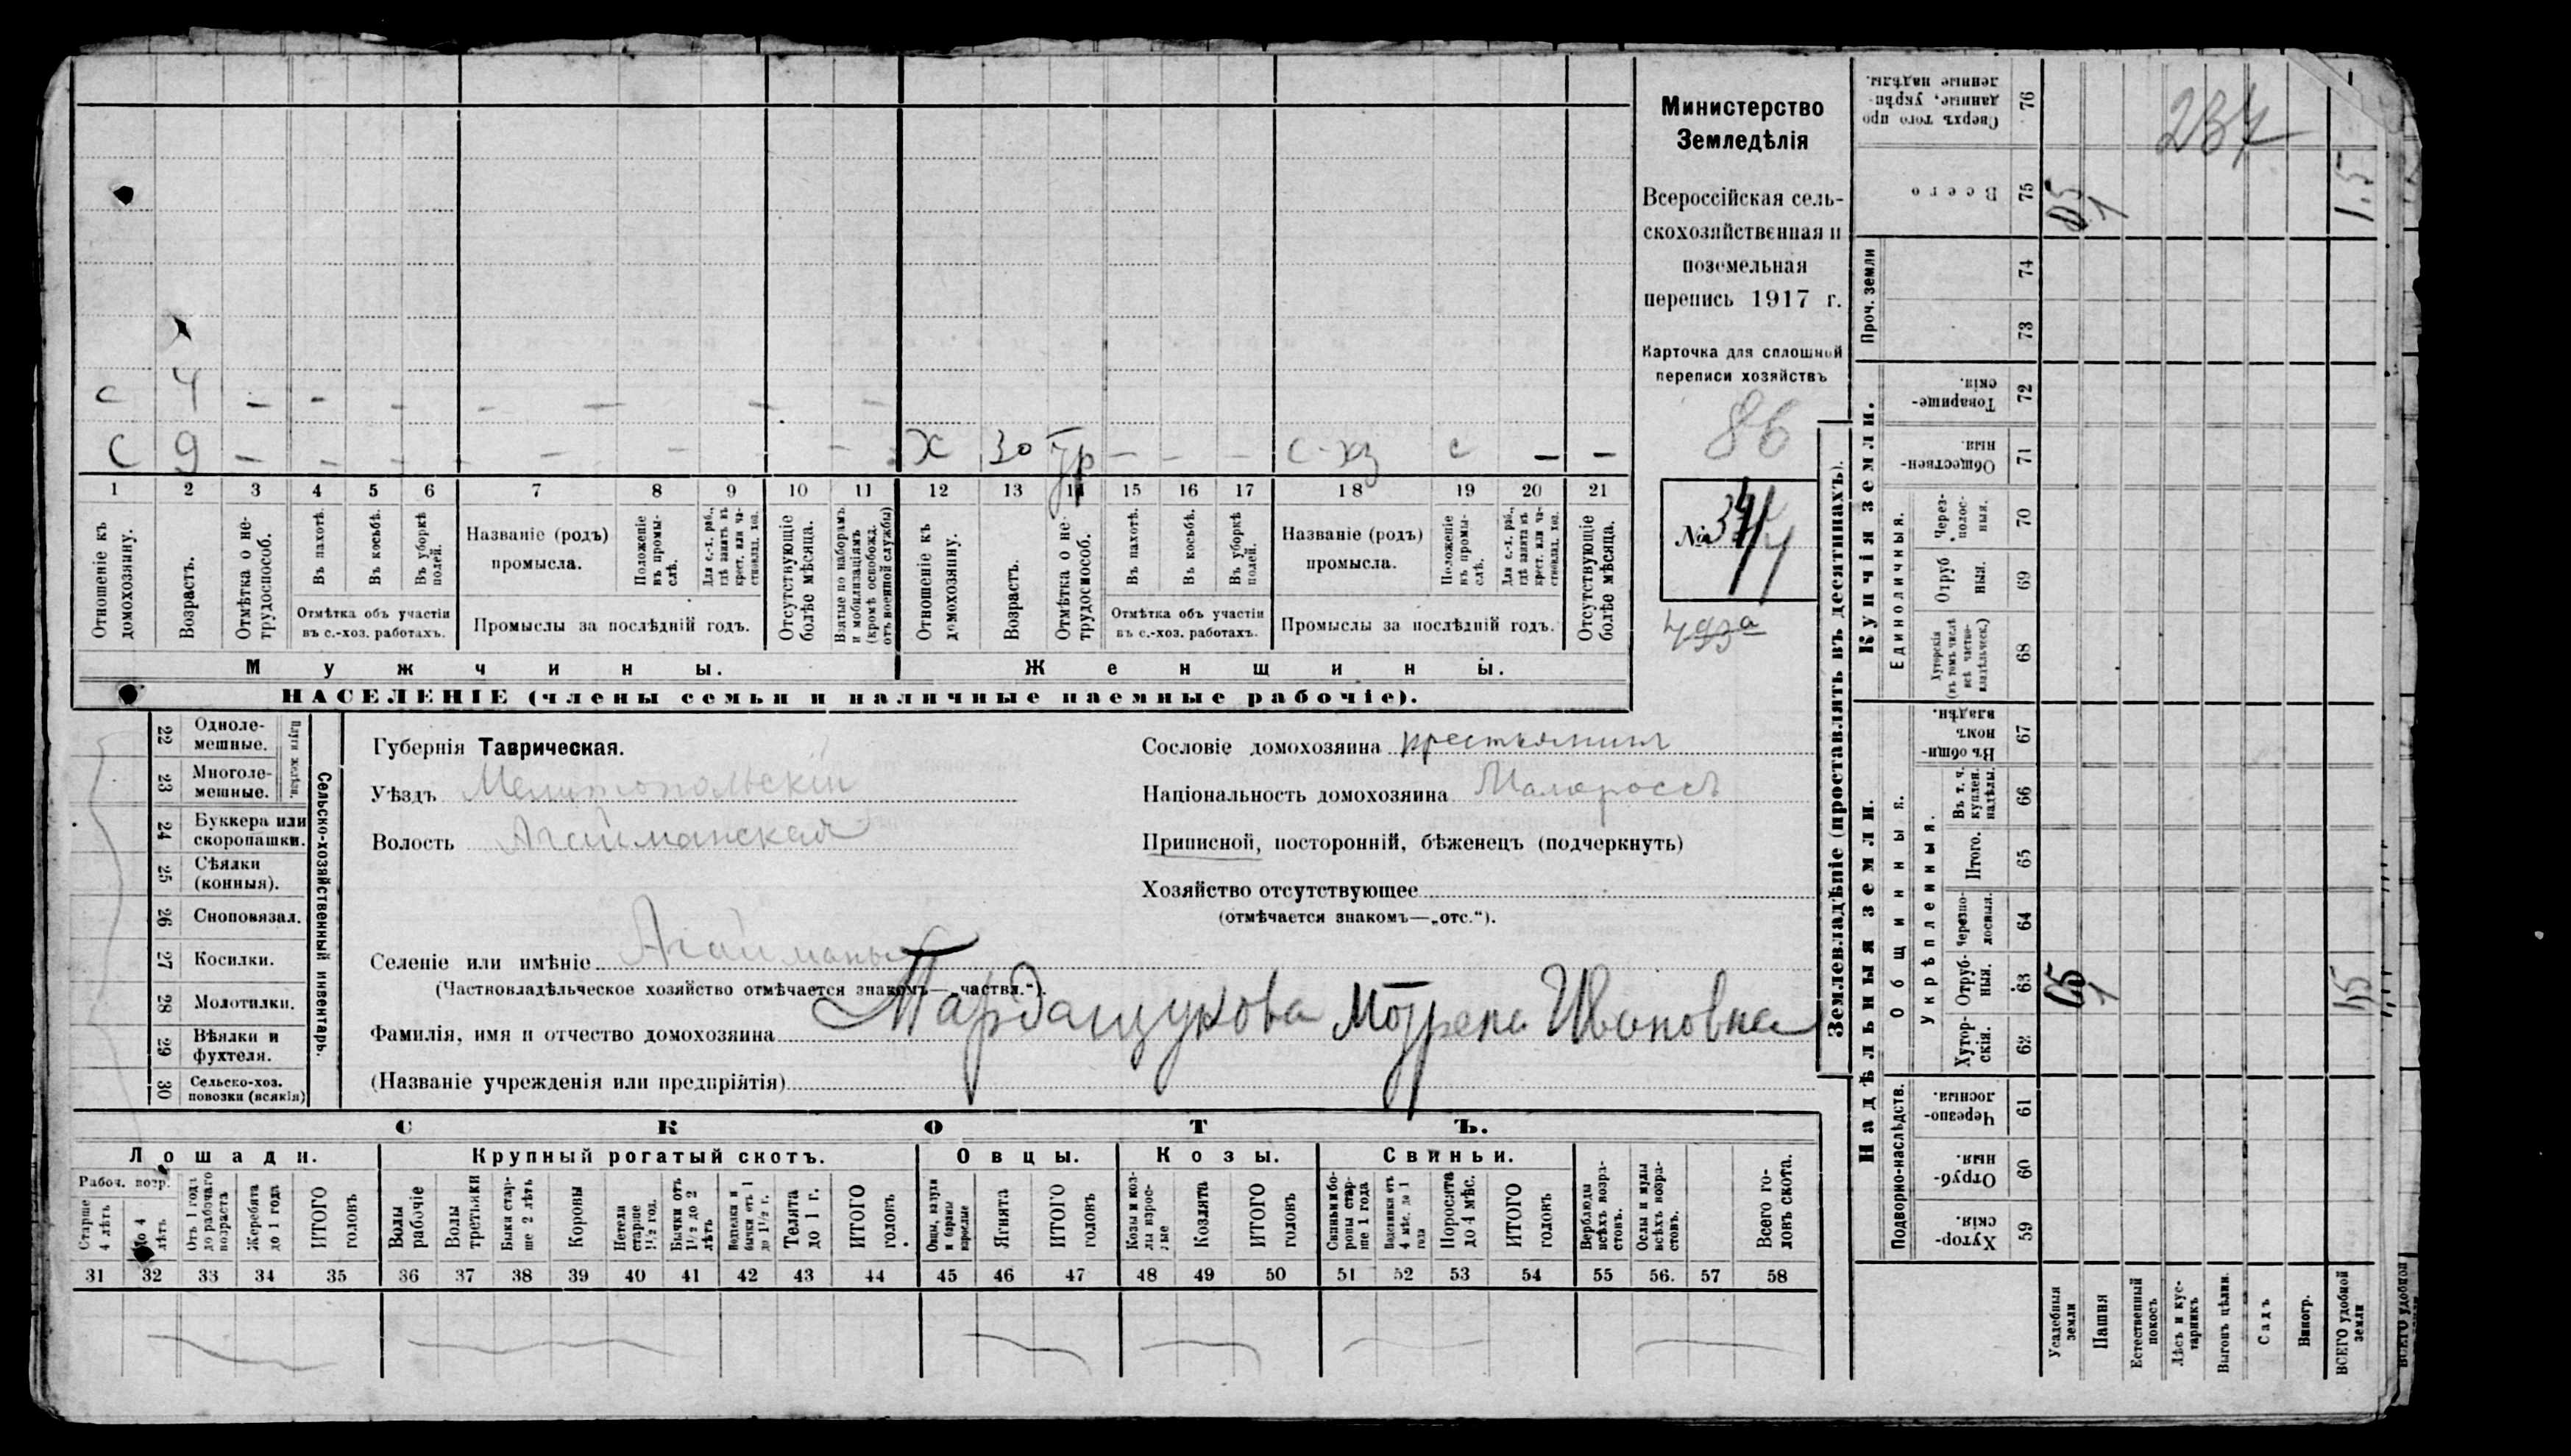 Министерство
Земледѣлія
Всероссійская сель-
скохозяйственная и
поземельная
перепись 1917 г.
Карточка для сплошной
переписи хозяйствъ
86
№
493а
с 4 – – – – – – –
с 9 – – – – – – – х 30 тр – – – с-хз с – –
1 2 3 4 5 6 7 8 9 10 11 12 13 14 15 16 17 18 19 20 21
Отношеніе къ домохозяину.
Возрастъ.
Отмѣтка о не-трудоспособ.
Въ пахотѣ.
Въ косьбѣ.
Въ уборкѣ полей.
Отмѣтка объ участіи
въ с.-хоз. работахъ.
Названіе (родъ)
промысла.
Положеніе въ промы-слѣ.
Для с.-х. раб., гдѣ занятъ въ крест. или ча-стновлад. хоз.
Промыслы за послѣдній годъ.
Отсутствующіе болѣе мѣсяца.
Взятые по наборамъ и мобилизаціямъ (кромѣ освобожд. отъ военной службы)
Отношеніе къ домохозяину.
Возрастъ.
Отмѣтка о не-трудоспособ.
Въ пахотѣ.
Въ косьбѣ.
Въ уборкѣ полей.
Отмѣтка объ участіи
въ с.-хоз. работахъ.
Названіе (родъ)
промысла.
Положеніе въ промы-слѣ.
Для с.-х. раб., гдѣ занята въ крест. или ча-стновлад. хоз.
Промыслы за послѣдній годъ.
Отсутствующіе болѣе мѣсяца.
Мужчины. Женщины.
НАСЕЛЕНІЕ (члены семьи и наличные наемные рабочіе).
Сельско-хозяйственный инвентарь.
Плуги желѣзн.
22 Одноле-мешные.
23 Многоле-мешные.
24 Буккера или скоропашки.
25 Сѣялки (конныя).
26 Сноповязал.
27 Косилки.
28 Молотилки.
29 Вѣялки и фухтеля.
30 Сельско-хоз. повозки (всякія)
Губернія Таврическая.
Уѣздъ Мелитопольскій
Волость Агайманская
Селеніе или имѣніе Агайманы
(Частновладѣльческое хозяйство отмѣчается знакомъ—„частвл.“).
Фамилія, имя и отчество домохозяина Пардащукова Мотрена Ивановна
(Названіе учрежденія или предпріятія)
Сословіе домохозяина крестьянинъ
Національность домохозяина Малороссъ
Приписной, посторонній, бѣженецъ (подчеркнуть)
Хозяйство отсутствующее
(отмѣчается знакомъ—„отс.“).
СКОТЪ.
Лошади. Крупный рогатый скотъ. Овцы. Козы. Свиньи.
Рабоч. возр.
Старше 4 лѣтъ
До 4 лѣтъ
Отъ 1 года до рабочаго возраста
Жеребята до 1 года
ИТОГО головъ
Волы рабочіе
Волы третьяки
Быки стар-ше 2 лѣтъ
Коровы
Нетели старше 1½ год.
Бычки отъ 1½ до 2 лѣтъ
Телки и бычки отъ 1 до 1½ г.
Телята до 1 г.
ИТОГО головъ.
Овцы, валухи и бараны взрослые
Ягнята
ИТОГО головъ
Козы и коз-лы взрос-лые
Козлята
ИТОГО головъ
Свиньи и бо-ровы стар-ше 1 года
Подсвинки отъ 4 мѣс. до 1 года
Поросята до 4 мѣс.
ИТОГО головъ
Верблюды всѣхъ возра-стовъ.
Ослы и мулы всѣхъ возра-стовъ.
Всего го-ловъ скота.
31 32 33 34 35 36 37 38 39 40 41 42 43 44 45 46 47 48 49 50 51 52 53 54 55 56. 57 58
Землевладѣніе (проставлять въ десятинахъ).
Надѣльныя земли. Купчія земли. Проч. земли
Подворно-наслѣдств.
Общинныя.
Укрѣпленныя.
Единоличныя.
Хутор-скія. 59
Отруб-ныя. 60
Черезпо-лосныя. 61
Хутор-скія. 62
Отруб-ныя. 63
Черезпо-лосныя. 64
Итого. 65
Въ т. ч. куплен. надѣлы. 66
Въ общин-номъ владѣн. 67
Хуторскія (въ томъ числѣ всѣ частно-владѣльческ.) 68
Отруб ныя. 69
Через-полос-ныя. 70
Обществен-ныя. 71
Товарище-скія. 72
73
74
Всего 75
Сверхъ того про данные, укрѣп-ленные надѣлы. 76
237
05 1 1,5
05 1 1,5
Усадебныя земли
Пашня
Естественный покосъ
Лѣсъ и кус-тарникъ
Выгонъ цѣлин.
Садъ
Виногр.
ВСЕГО удобной земли